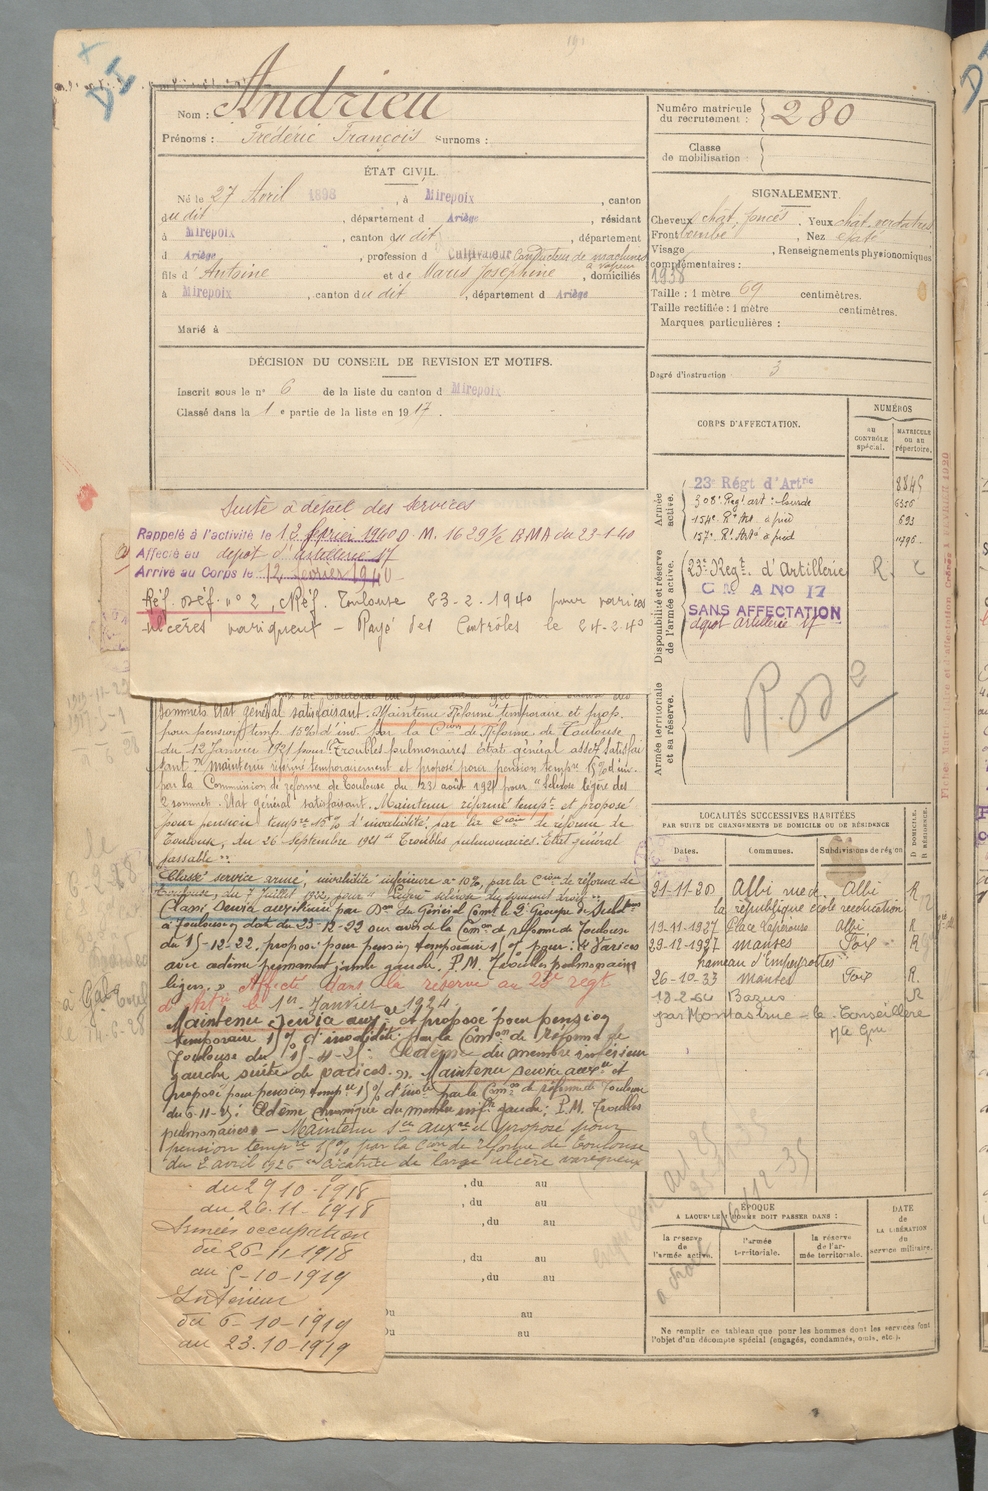 Nom : Andrieu
Prénoms : Frédéric François Surnoms :
ÉTAT CIVIL.
Né le 27 Avril 1898, à Mirepoix, canton
dudit, département d Ariège, résidant
à Mirepoix, canton dudit, département
d Ariège, profession d Cultivateur Conducteur de machines
à vapeur
fils d'Antoine et de Marie Joséphine, domiciliés
à Mirepoix, canton dudit, département d Ariège
Marié à
DÉCISION DU CONSEIL DE REVISION ET MOTIFS.
Inscrit sous le n° 6 de la liste du canton d Mirepoix
Classé dans la 1 e partie de la liste en 1917.
Suite à détail des Services
Rappelé à l'activité le 12 février 1940 D.M. 1629 1/2 BMA du 23-1-40
Affecté au dépôt d'artillerie 17
Arrivé au Corps le 12 février 1940
Réf. déf. n° 2, Réf. Toulouse 23-2-1940 pour varices
ulcères variqueux - Rayé des Contrôles le 24-2-40
sommets Etat général satisfaisant. Maintenu Réformé temporaire et prop.
pour pension temp. 15% d'inv. par la Cion de Réforme de Toulouse
du 12 Janvier 1921 pour: Troubles pulmonaires Etat général assez satisfai
sant. maintenu réformé temporairement et proposé pour pension tempre 15% d'inv.
par la Commission de réforme de Toulouse du 23 août 1921 pour "Sclérose légère des
2 sommets. Etat général satisfaisant. Maintenu réformé tempt et proposé
pour pension tempre 15% d'invalidité par la Cion de réforme de
Toulouse, du 26 Septembre 1921 Troubles pulmonaires. Etat général
passable".
Classé service armé, invalidité inférieure à 10%, par la Cion de réforme de
Toulouse, du 7 Juillet 1922, pour: Légère sclérose du sommet droit".
Classé Service auxiliaire par Don du Général Comt le 2e Groupe de Subdons
à Toulouse en date du 23-12-22 sur avis de la Comon de réforme de Toulouse
du 15-12-22. proposé pour pension temporaire 15% pour: 1° Varices
avec œdème permanent jambe gauche. P.M. Troubles pulmonaires
légers. » Affecté dans la réserve au 23e régt
d'artie le 1er Janvier 1924.
Maintenu Service auxre et proposé pour pension
temporaire 15% d'invalidité par la Comon de Réforme de
Toulouse du 15-4-25: Œdème du membre inférieur
gauche suite de varices. ». Maintenu service auxre et
proposé pour pension tempre 15% d'invté par la Comon de réforme de Toulouse
du 6-11-25: Œdème chronique du membre infr gauche; P.M. Troubles
pulmonaires» - Maintenu Sce auxre et proposé pour
pension tempre 15% par la Cion de réforme de Toulouse
du 2 avril 1926 Cicatrice de large ulcère variqueux
du 29-10-1918
au 26-11-1918
Armées occupation
du 26-11-1918
au 5-10-1919
Intérieur
du 6-10-1919
au 23-10-1919
, du au
, du au
, du au
, du au
, du au
Du au
Du au
Numéro matricule
du recrutement : 280
Classe
de mobilisation :
SIGNALEMENT.
Cheveux chât. foncés. Yeux chat. verdatres
Front bombé, Nez épaté
Visage, Renseignements physionomiques
complémentaires :
1938
Taille : 1 mètre 69 centimètres.
Taille rectifiée : 1 mètre centimètres.
Marques particulières :
Degré d'instruction 3
CORPS D'AFFECTATION.
NUMÉROS
AU CONTRÔLE spécial.
MATRICULE OU AU répertoire.
Armée active.
23e Régt d'Artrie 8845
308e Régt art. lourde 6356
154e Rt Art. à pied 693
157e Rt Artie à pied 1796
Disponibilité et réserve de l'armée active.
23e Régt. d'Artillerie R. C
C M A No 17
SANS AFFECTATION
dépôt artillerie 17
Armée territoriale et sa réserve.
R.D 2
LOCALITÉS SUCCESSIVES HABITÉES
PAR SUITE DE CHANGEMENTS DE DOMICILE OU DE RÉSIDENCE
Dates. Communes. Subdivisions de région
D DOMICILE. R RÉSIDENCE.
21-11-20 Albi rue de Albi R
la république école reéducation
19-11-1927 Place Lapérouse Albi R
29-12-1927 Manses Foix R
hameau d'Empeyrottes
26-10-33 Manses Foix R.
18-2-64 Bazus R
par Montastruc-la-Conseillère
Hte Gne
ÉPOQUE
A LAQUELLE L'HOMME DOIT PASSER DANS :
la réserve de l'armée active.
l'armée territoriale.
la réserve de l'armée territoriale.
DATE de LA LIBÉRATION du service militaire.
Ne remplir ce tableau que pour les hommes dont les services font
l'objet d'un décompte spécial (engagés, condamnés, omis, etc.).